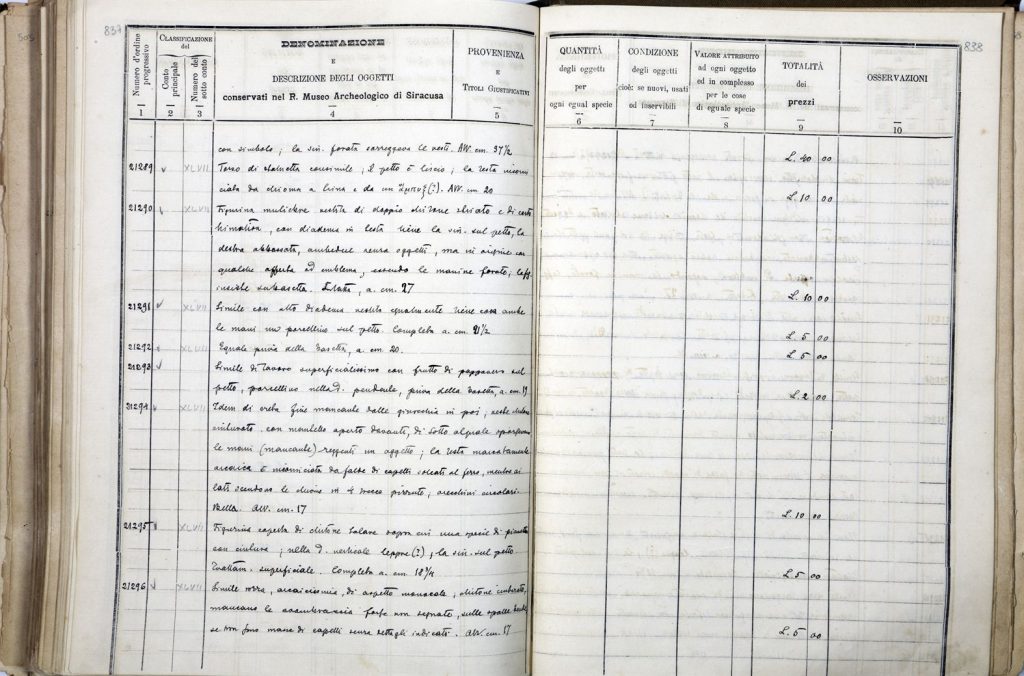 837
Numero d'ordine progressivo
CLASSIFICAZIONE del
Conto principale
Numero del sotto conto
DENOMINAZIONE
E
DESCRIZIONE DEGLI OGGETTI
conservati nel R. Museo Archeologico di Siracusa
PROVENIENZA
E
TITOLI GIUSTIFICATIVI
1 2 3 4 5
con simbolo; la sin. forata sorreggeva le vesti. Alt. cm. 37½
21289 XLVII Torso di statuetta consimile, il petto è liscio; la testa
ciata da chioma a lira e da un (?). Alt. cm. 20
21290 XLVII Figurina muliebre vestita di doppio chitone e di corto
himation, con diadema in testa tiene la sin. sul petto, la
destra abbassata, ambedue senza oggetti, ma in origine con
qualche offerta od emblema, essendo le manine forate;
a. cm. 27
21291 XLVII Simile con alto diadema vestita egualmente tiene con ambe
le mani un porcellino sul petto. Completa a. cm. 21½
21292 XLVII Eguale priva della basetta, a. cm. 20.
21293 Simile di lavoro superficialissimo con frutto di sul
petto, porcellino nella d. pendente, priva della basetta, a. cm. 19
21294 XLVII Idem di creta fine mancante dalle ginocchia in poi; veste
con mantello aperto davanti, di sotto al quale
le mani (mancante) reggenti un oggetto; la testa marcatamente
arcaica è incorniciata da falde di capelli solcati al ferro, mentre ai
lati scendono le chiome in orecchini circolari.
Bella. Alt. cm. 17
21295 XLVII Figurina coperta di chitone talare sopra cui una specie di
con cintura; nella d. verticale leppre (?); la sin. sul petto.
Trattam. superficiale. Completa a. cm. 18¾
21296 XLVII Simile rozza, arcaicissima, di aspetto chitone
mancano le avambraccia forse non segnate, sulle spalle
masse di capelli senza dettagli indicati. Alt. cm. 17
838
QUANTITÀ
degli oggetti
per
ogni egual specie
CONDIZIONE
degli oggetti
cioè: se nuovi, usati
od inservibili
VALORE ATTRIBUTO
ad ogni oggetto
ed in complesso
per le cose
di eguale specie
TOTALITÀ
dei
prezzi
OSSERVAZIONI
6 7 8 9 10
L. 40 00
L. 10 00
L. 10 00
L. 5 00
L. 5 00
L. 2 00
L. 10 00
L. 5 00
L. 5 00